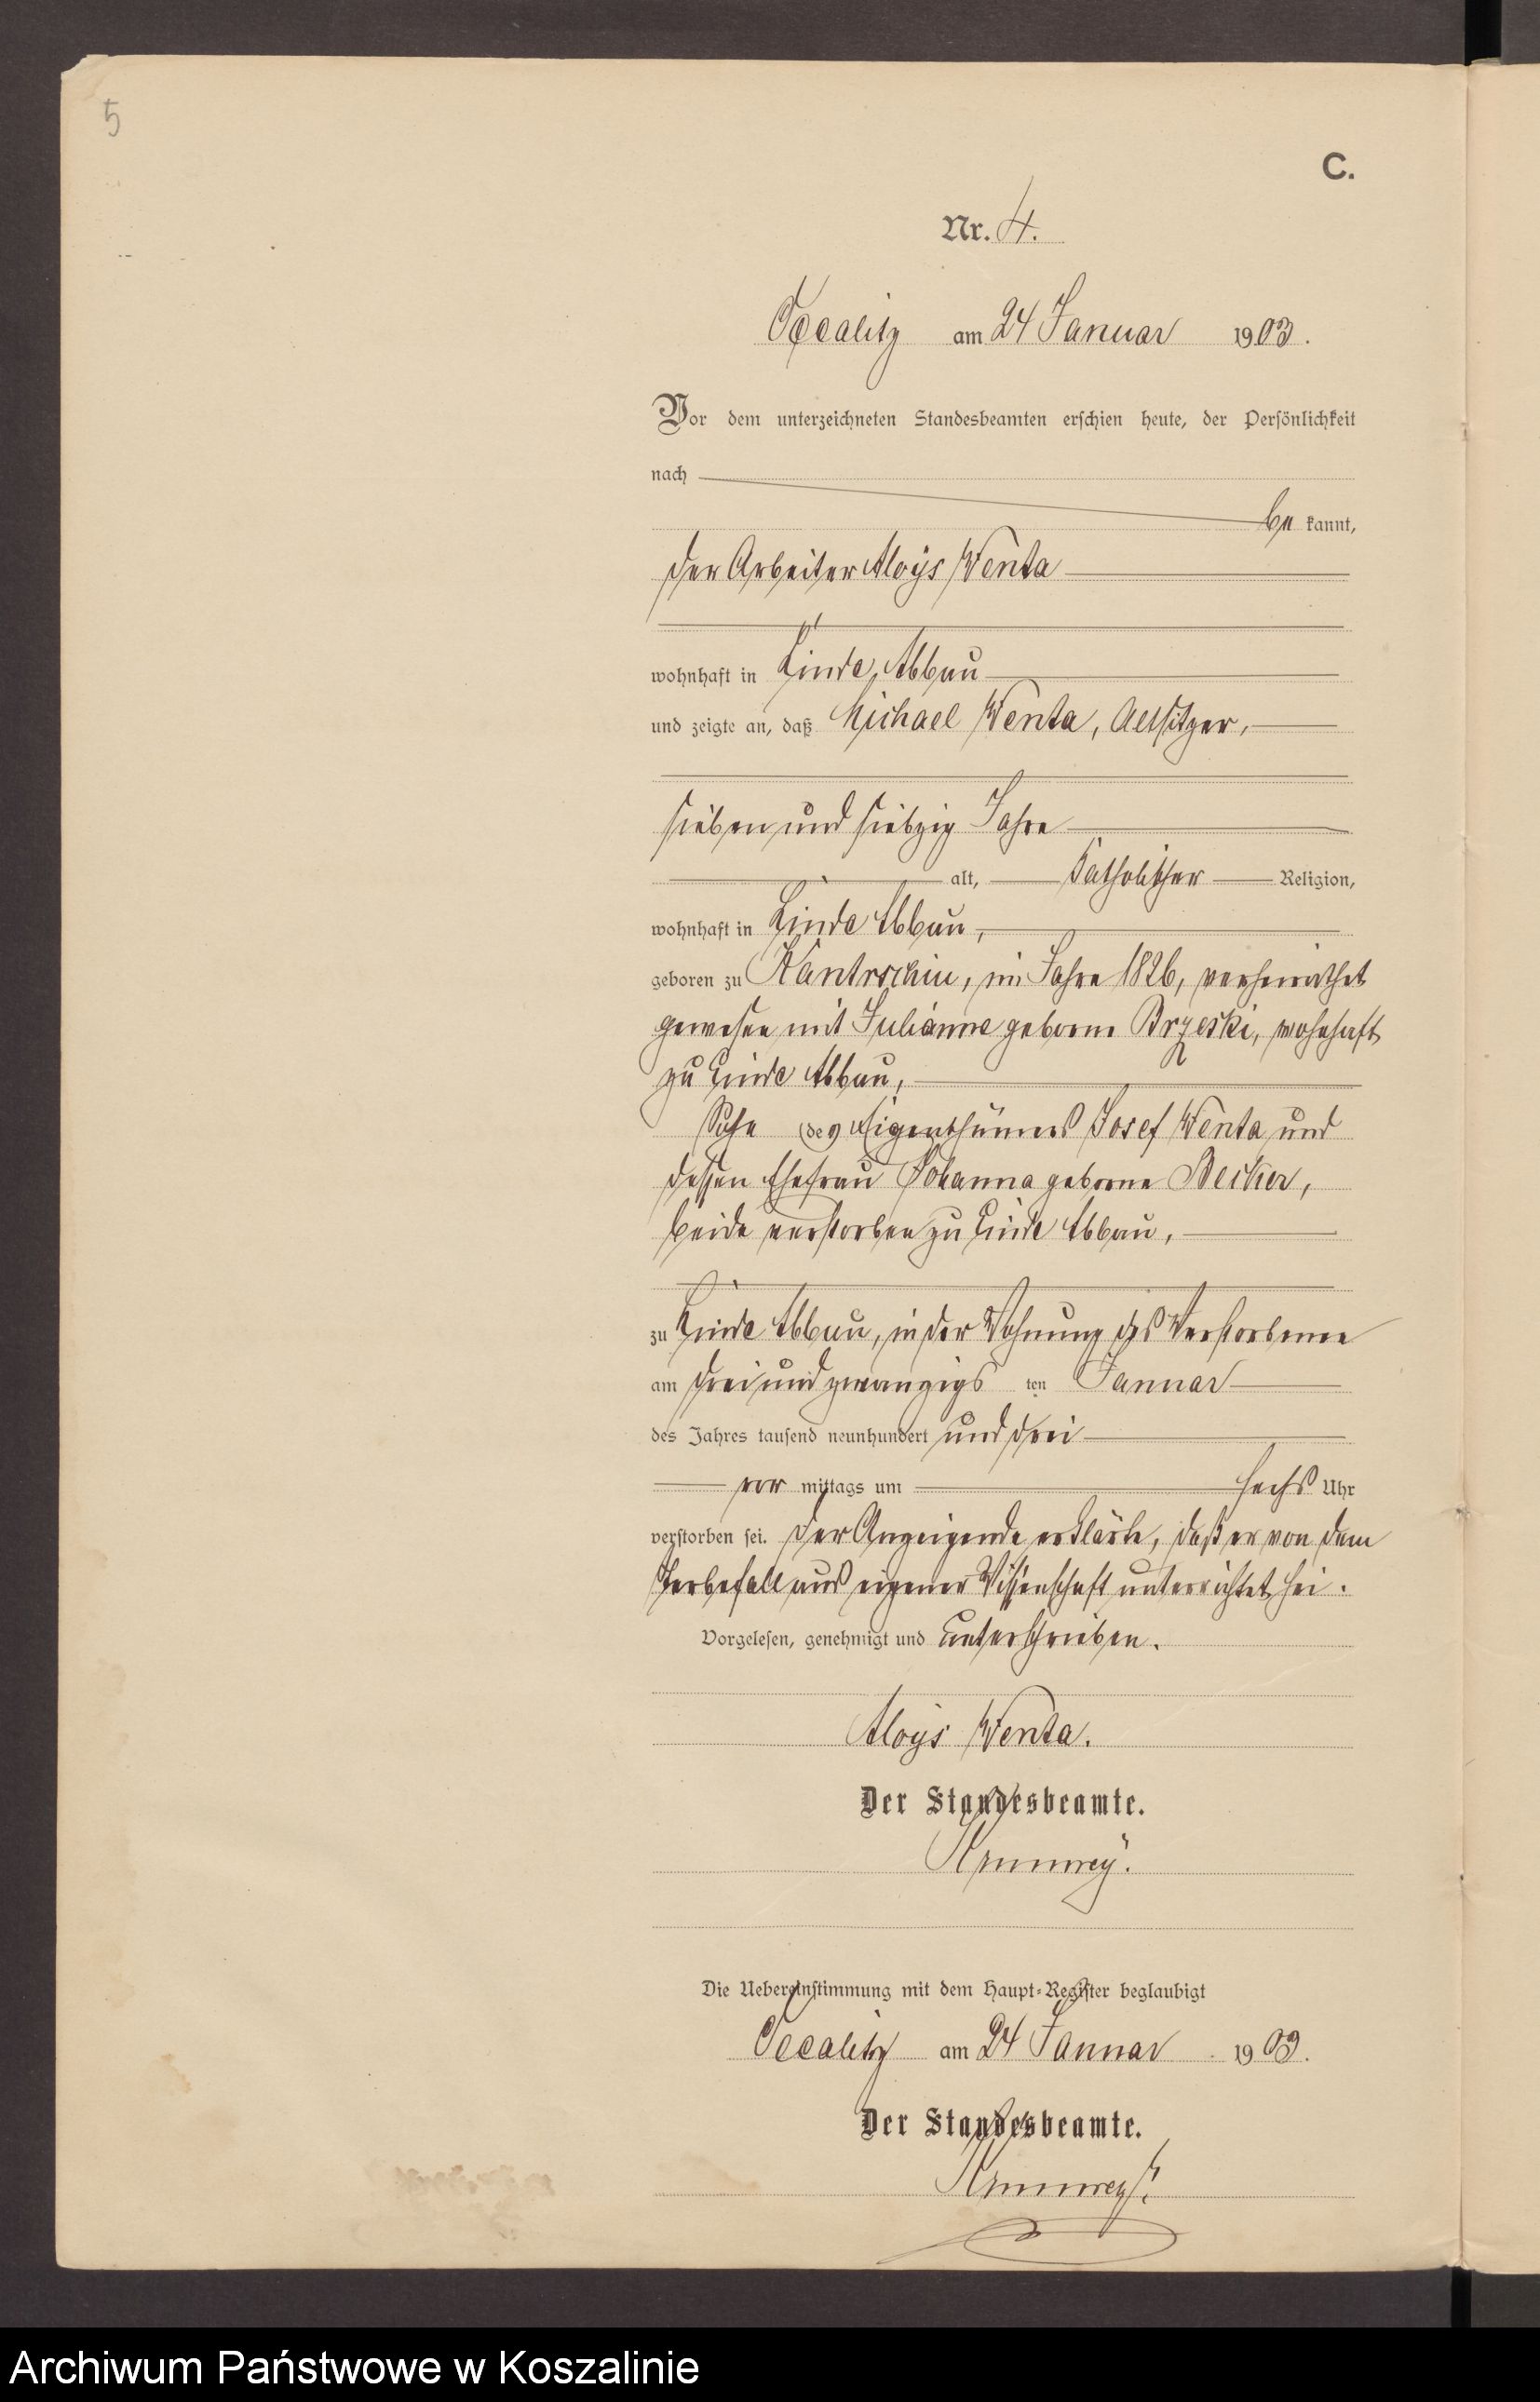 5
C.
Nr. 4.
Occalitz am 24 Januar 1903.
Vor dem unterzeichneten Standesbeamten erschien heute, der Persönlichkeit
nach
be kannt,
der Arbeiter Aloÿs Wenta
wohnhaft in Linde, Abbau
und zeigte an, daß Michael Wenta, Altsitzer,
sieben und siebzig Jahre
alt, katholischer Religion,
wohnhaft in Linde Abbau,
geboren zu Kantrschin, im Jahre 1826, verheirathet
gewesen mit Julianne geborne Brzeski, wohnhaft
zu Linde Abbau,
Sohn des Eigenthümers Josef Wenta und
dessen Ehefrau Johanna geborne Becker,
beide verstorben zu Linde Abbau,
zu Linde Abbau, in der Wohnung des Verstorbenen
am drei und zwanzigs ten Januar
des Jahres tausend neunhundert und drei
vor mittags um sechs Uhr
verstorben sei. Der Anzeigende erklärte, daß er von dem
Sterbefall aus eigener Wissenschaft unterrichtet sei.
Vorgelesen, genehmigt und unterschrieben.
Aloÿs Wenta.
Der Standesbeamte.
Krumrey.
Die Uebereinstimmung mit dem Haupt-Register beglaubigt
Occalitz am 24 Januar 1903.
Der Standesbeamte.
Krumrey.
Archiwum Państwowe w Koszalinie